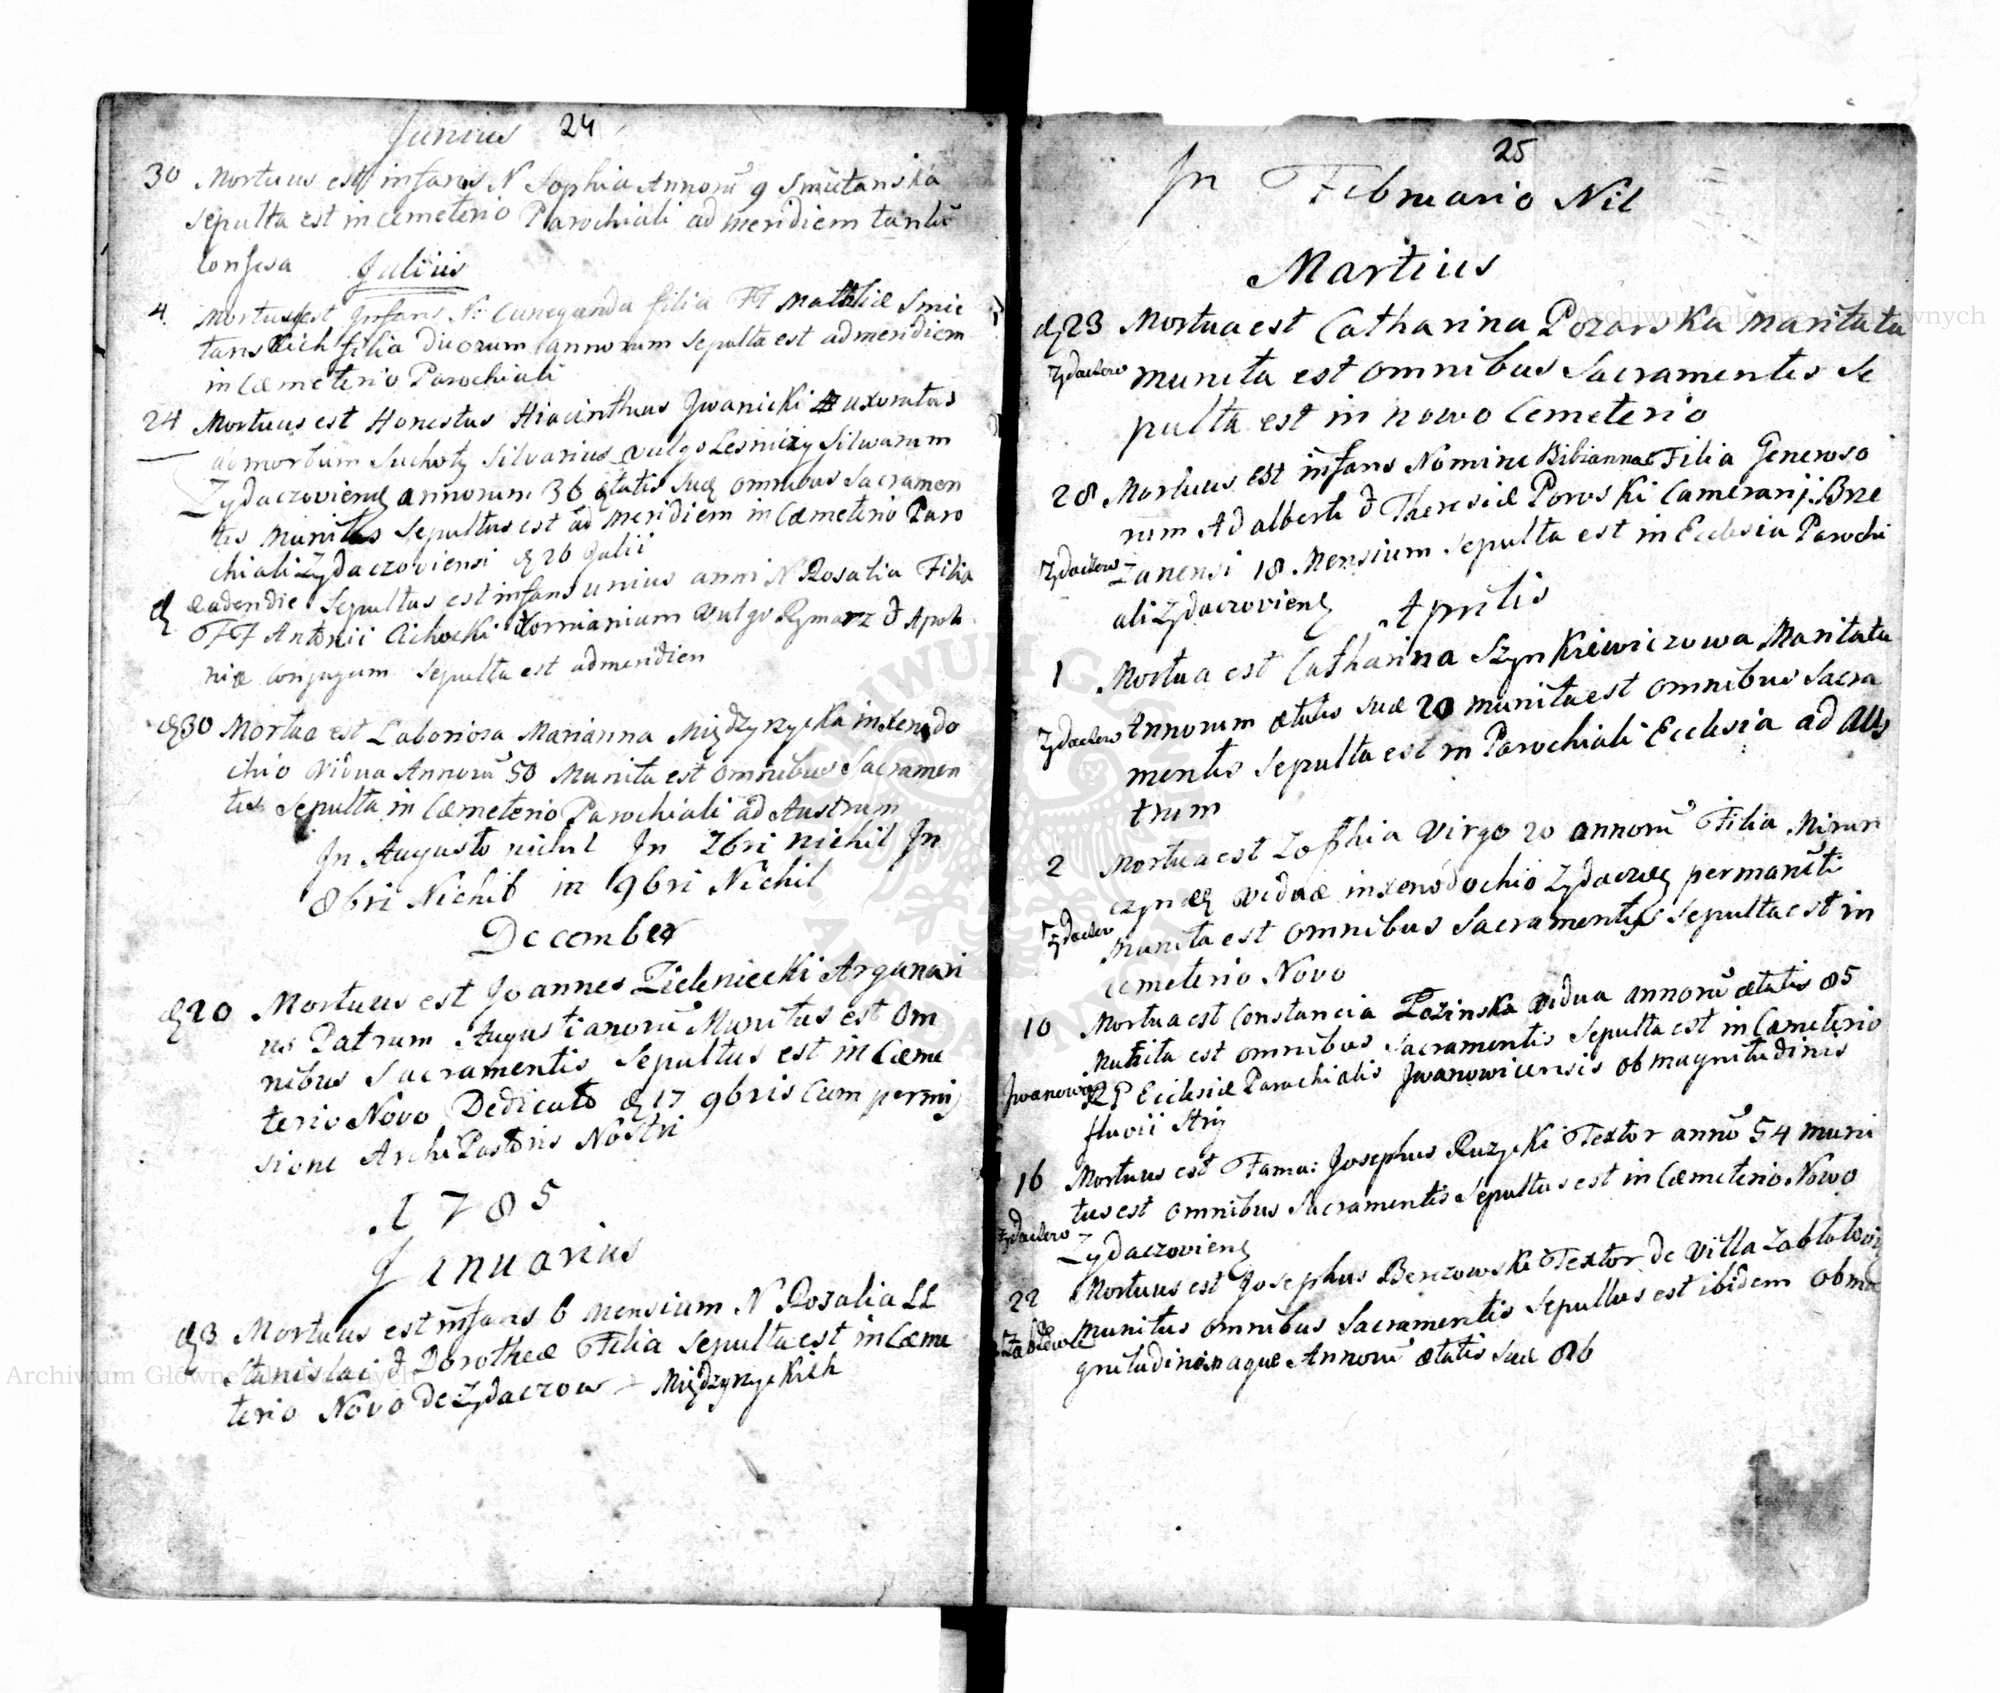 Junius 24
30 Mortuus est infans N Sophia Annorũ 9 Smutanska
Sepulta est in Cemeterio Parochiali ad meridiem tantũ
Confesa Julius
4. Mortuus est Infans N: Cunegunda filia FF Mathiæ Smu
tanskich filia duorum annorum Sepulta est ad meridiem
in Cæmeterio Parochiali
24 Mortuus est Honestus Hiacinthus Jwanicki uxoratus
ad morbum Suchoty Silvarius vulgo Lesniczy Silwarum
Zydaczovienę annorum 36 ętatis suę omnibus Sacramen
tis munitus Sepultus est ad meridiem in Cæmeterio Paro
chiali Zydaczoviensi 26 Julii
eadendie Sepultus est infans unius anni N Rosalia Filia
FF Antonii Cichocki vulgo Rymarz Apolo
niæ Conjugum Sepulta est ad meridien
30 Mortua est Laboriosa Marianna Międzyrzycka in Xenodo
chio vidua Annorũ 50 Munita est omnibus Sacramen
tis Sepulta in Cæmeterio Parochiali ad Austrum
Jn Augusto nichil Jn 7bri nichil Jn
8bri Nichil in 9bri Nichil
December
20 Mortuus est Joannes Zieleniecki Arganari
us Patrum Augustianorũ Munitus est Om
nibus Sacramentis Sepultus est in Cæme
terio Novo Dedicato 17 9bris Cum permi
sione Archi Pastoris Nostri
1785
Januarius
3 Mortuus est infans 6 mensium N Rosalia LL
Stanislai Dorotheæ Filia Sepulta est in Cæme
terio Novo De Zydaczow Międzyrzyckich
25
Jn Februario Nil
Martius
23 Mortua est Catharina Pozarska Maritata
Zydaczow munita est omnibus Sacramentis Se
pulta est in nowo Cemeterio
28 Mortuus est infans Nomine Bibianna Filia Generoso
rum Adalberti Theresiæ Poroski Camerarij Brze
Zydaczow zanensi 18 Mensium Sepulta est in Ecclesia Parochi
ali Zydaczovienę Aprilis
1 Mortua est Catharina Szynkiewiczowa Maritata
Zydaczow Annorum ætatis suæ 20 munita est omnibus Sacra
mentis Sepulta est in Parochiali Ecclesia ad Aus
trum
2 Mortua est Zophia Virgo 20 annorũ Filia
viduæ in xenodochio permanẽti
Zydaczow munita est omnibus Sacramentis Sepulta est in
cemeterio Novo
10 Mortua est Constancia Łozinska vidua annorũ ætatis 85
Munita est omnibus Sacramentis Sepulta est in Cæmeterio
Jwanowce Ecclesiæ Parochialis Jwanowicensis ob magnitudinis
fluvii Stryj
16 Mortuus est Fama: Josephus Ruzycki Textor annõ 54 muni
tus est omnibus Sacramentis Sepultus est in Cæmeterio Nowo
Zydaczow Zydaczovienę
22 Mortuus est Josephus Berezowski Textor de Villa
munitus omnibus Sacramentis Sepultus est ibidem ob ma
gnitudinis aquæ Annorũ ætatis suæ 86
Archiwum Główne Akt Dawnych